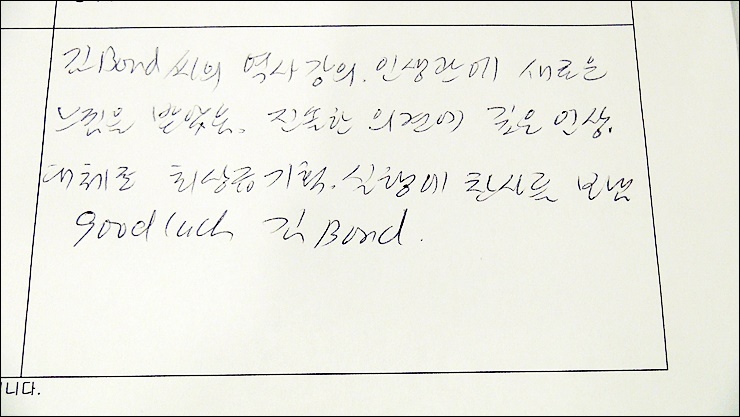 김Bond씨의 역사강의. 인생관에 새로운
느낌을 받았음. 진솔한 의견에 깊은 인상.
대체로 최상급 기획. 실행에 찬사를 보냄
good luck 김Bond.
니다.